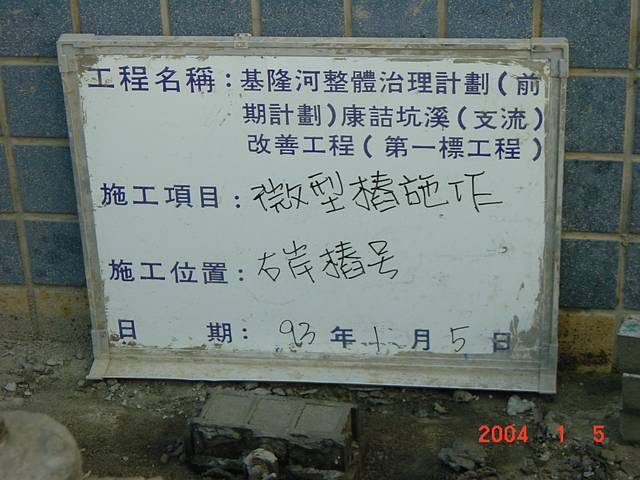 工程名稱：基隆河整體治理計劃(前
期計劃)康詰坑溪(支流)
改善工程(第一標工程)
施工項目：微型樁施作
施工位置：右岸樁号
日期：93年1月5日
2004 1 5